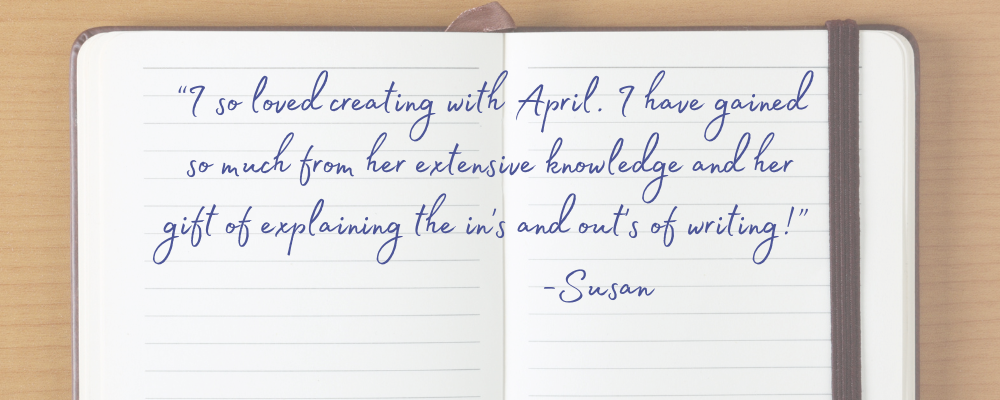 “I so loved creating with April. I have gained
so much from her extensive knowledge and her
gift of explaining the in's and out's of writing!”
-Susan